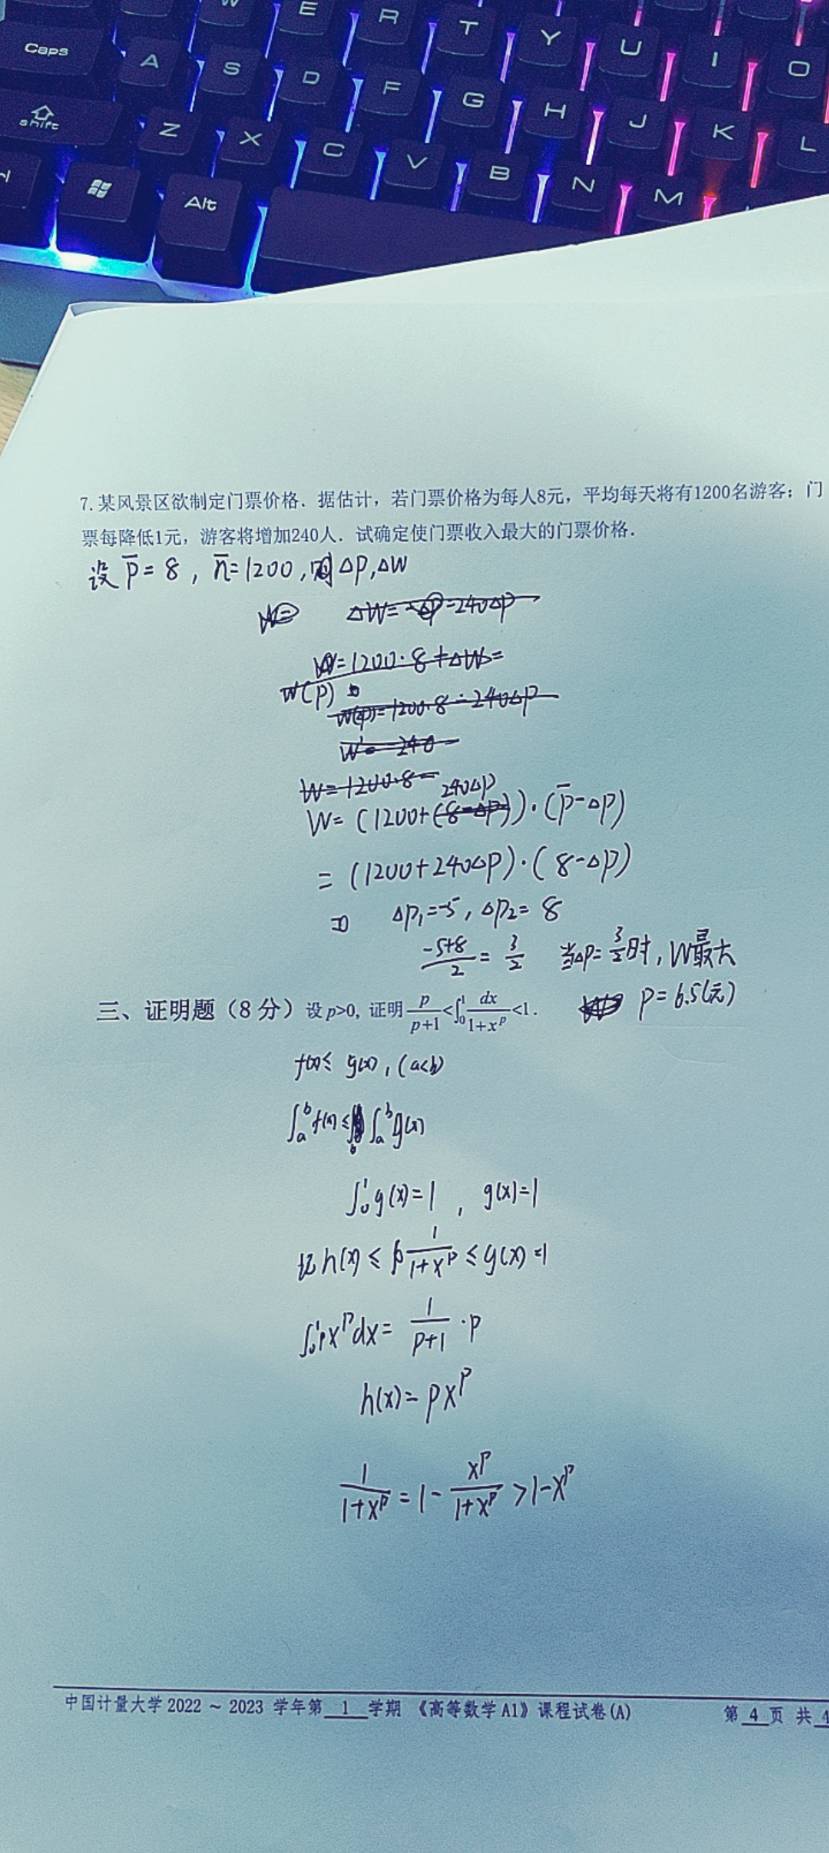 W E R T Y U I O
Caps A S D F G H J K L
shift Z X C V B N M
Alt
7. 某风景区欲制定门票价格. 据估计, 若门票价格为每人8元, 平均每天将有1200名游客; 门
票每降低1元, 游客将增加240人. 试确定使门票收入最大的门票价格.
设 p̄ = 8, n̄ = 1200, 则 ΔP, ΔW
W=
ΔW = -240ΔP
W = 1200·8 + ΔW =
W(P)
W(P) = 1200·8 - 240ΔP
W' = -240
W = 1200·8 -
240ΔP
W = (1200 + (8-ΔP))·(p̄ - ΔP)
= (1200 + 240ΔP)·(8 - ΔP)
ΔP₁ = -5, ΔP₂ = 8
(-5+8)/2 = 3/2 当ΔP = 3/2时, W最大
P = 6.5(元)
三、证明题 (8 分) 设 p>0, 证明 p/(p+1) < ∫₀¹ dx/(1+x^p) < 1.
f(x) ≤ g(x), (a<b)
∫ₐᵇ f(x) ≤ ∫ₐᵇ g(x)
∫₀¹ g(x) = 1, g(x) = 1
记 h(x) ≤ 1/(1+x^p) ≤ g(x) = 1
∫₀¹ px^p dx = 1/(p+1) · p
h(x) = px^p
1/(1+x^p) = 1 - x^p/(1+x^p) > 1 - x^p
中国计量大学 2022 ~ 2023 学年第 1 学期 《高等数学 A1》 课程试卷(A) 第 4 页 共 4